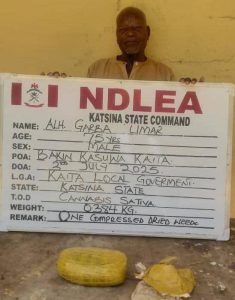 NDLEA
KATSINA STATE COMMAND
NAME: ALH. GARBA LIMAR
AGE: 75 YRS
SEX: MALE
POA: BAKIN KASUWA KAITA
DOA: 5TH JULY 2025
L.G.A: KAITA LOCAL GOVERMENT
STATE: KATSINA STATE
T.O.D CANNABIS SATIVA
WEIGHT: 0.384 KG.
REMARK: ONE COMPRESSED DRIED WEEDS